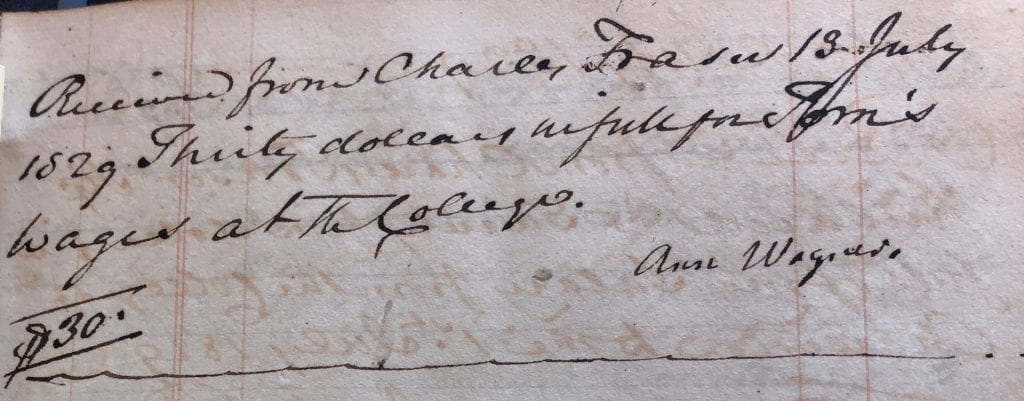 Received from Charles Fraser 13 July
1829 Thirty dollars in full for Tom's
wages at the College.
Ann Wagner.
$30.